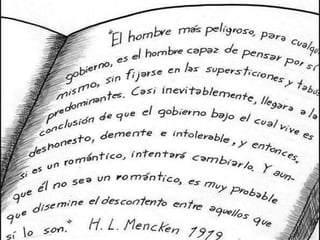 "El hombre más peligroso, para cualquier
gobierno, es el hombre capaz de pensar por sí
mismo, sin fijarse en las supersticiones y tabús
predominantes. Casi inevitablemente, llegara a la
conclusión de que el gobierno bajo el cual vive es
deshonesto, demente e intolerable, y entonces,
si es un romántico, intentará cambiarlo. Y aun-
que él no sea un romántico, es muy probable
que disemine el descontento entre aquellos que
sí lo son." H. L. Mencken 1919